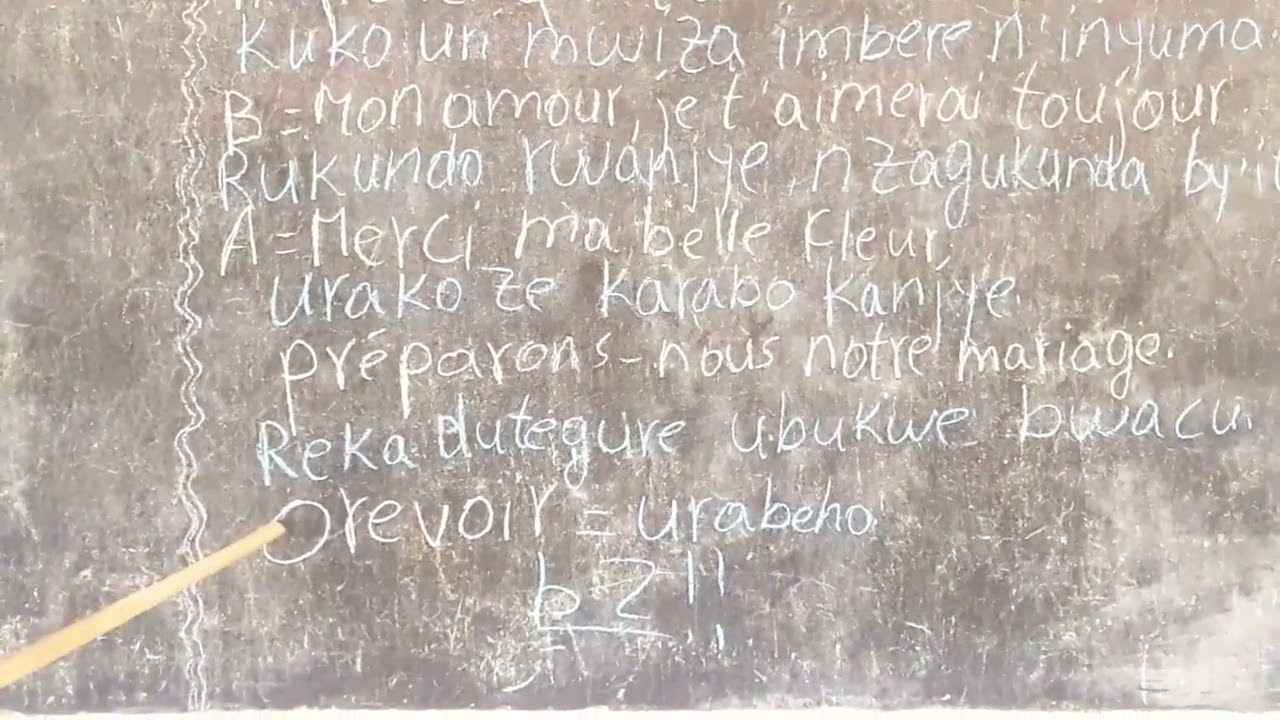 Kuko uri mwiza imbere n'inyuma.
B = Mon amour, je t'aimerai toujour
Rukundo rwanjye, nzagukunda by'it
A = Merci ma belle Fleur,
urakoze karabo kanjye.
préparons-nous notre mariage.
Reka dutegure ubukwe bwacu.
Orevoir = urabeho.
bz!!